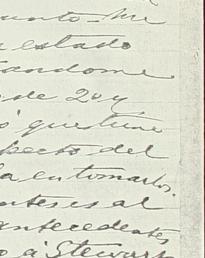 unto-me
estado
tandome
de 20 y
que tiene
specto del
la en tomarlos.
antes es al
antecedentes
o á Stewart